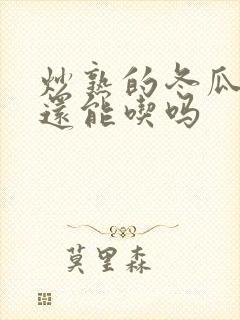 炒熟的冬瓜
還能喫吗
莫里森